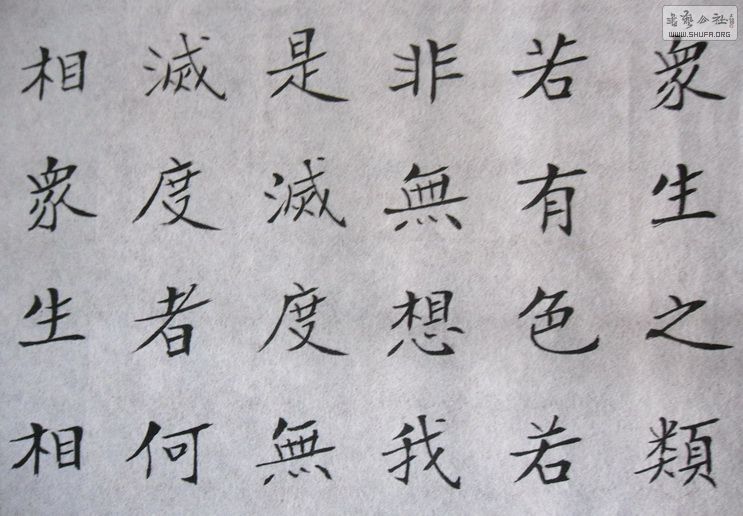 眾生之類
若有色若
非無想我
是滅度無
滅度者何
相眾生相
WWW.SHUFA.ORG